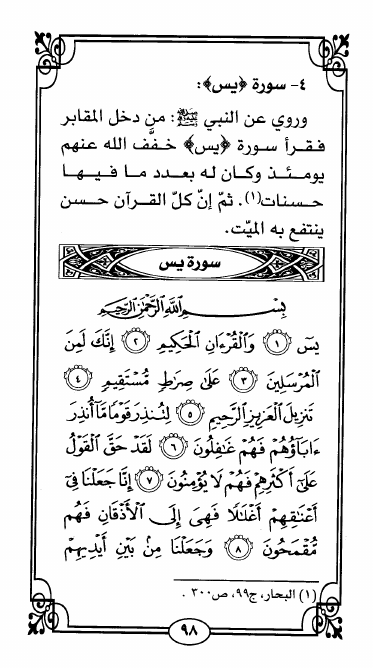 ٤- سورة ﴿يس﴾:
وروي عن النبي ﷺ: من دخل المقابر
فقرأ سورة ﴿يس﴾ خفَّف الله عنهم
يومئذ وكان له بعدد ما فيها
حسنات(١). ثمّ إنّ كلّ القرآن حسن
ينتفع به الميّت.
سورة يس
بِسْمِ اللَّهِ الرَّحْمَٰنِ الرَّحِيمِ
يسٓ ١ وَالْقُرْءَانِ الْحَكِيمِ ٢ إِنَّكَ لَمِنَ
الْمُرْسَلِينَ ٣ عَلَىٰ صِرَٰطٍ مُّسْتَقِيمٍ ٤
تَنزِيلَ الْعَزِيزِ الرَّحِيمِ ٥ لِتُنذِرَ قَوْمًا مَّآ أُنذِرَ
ءَابَآؤُهُمْ فَهُمْ غَٰفِلُونَ ٦ لَقَدْ حَقَّ الْقَوْلُ
عَلَىٰٓ أَكْثَرِهِمْ فَهُمْ لَا يُؤْمِنُونَ ٧ إِنَّا جَعَلْنَا فِىٓ
أَعْنَٰقِهِمْ أَغْلَٰلًا فَهِىَ إِلَى الْأَذْقَانِ فَهُم
مُّقْمَحُونَ ٨ وَجَعَلْنَا مِنۢ بَيْنِ أَيْدِيهِمْ
(١) البحار، ج٩٩، ص٣٠٠.
٩٨